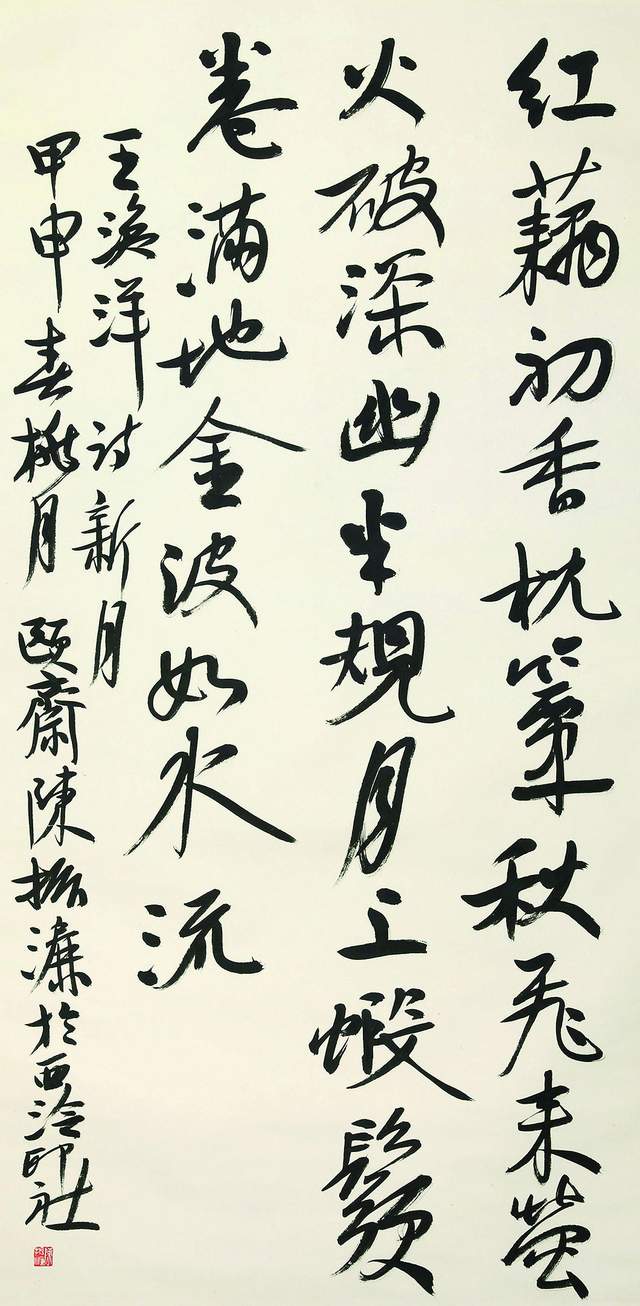 红藕初香枕簟秋飛来螢
火破深幽半規月上蝦鬚
卷滿地金波如水流
王渙洋诗新月
甲申春桃月頤齋陳振濂於西泠印社